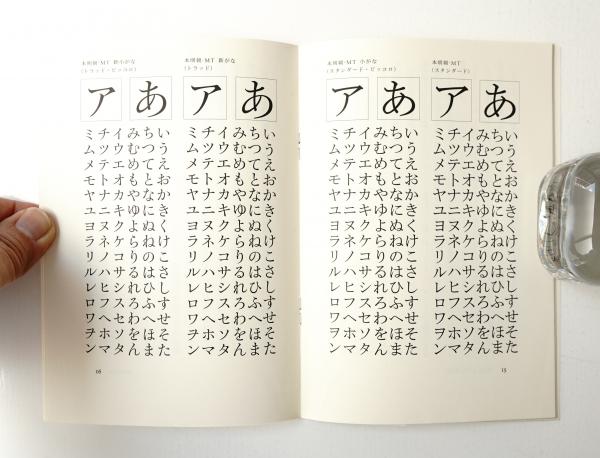 本明朝-MT
(スタンダード)
あ
いうえおかきくけこさしすせそた
ちつてとなにぬねのはひふへほま
みむめもやゆよらりるれろわをん
ア
イウエオカキクケコサシスセソタ
チツテトナニヌネノハヒフヘホマ
ミムメモヤユヨラリルレロワヲン
本明朝-MT 小がな
(スタンダード・ピッコロ)
あ
いうえおかきくけこさしすせそた
ちつてとなにぬねのはひふへほま
みむめもやゆよらりるれろわをん
ア
イウエオカキクケコサシスセソタ
チツテトナニヌネノハヒフヘホマ
ミムメモヤユヨラリルレロワヲン
15
本明朝-MT 新がな
(トラッド)
あ
いうえおかきくけこさしすせそた
ちつてとなにぬねのはひふへほま
みむめもやゆよらりるれろわをん
ア
イウエオカキクケコサシスセソタ
チツテトナニヌネノハヒフヘホマ
ミムメモヤユヨラリルレロワヲン
本明朝-MT 新小がな
(トラッド・ピッコロ)
あ
いうえおかきくけこさしすせそた
ちつてとなにぬねのはひふへほま
みむめもやゆよらりるれろわをん
ア
イウエオカキクケコサシスセソタ
チツテトナニヌネノハヒフヘホマ
ミムメモヤユヨラリルレロワヲン
16